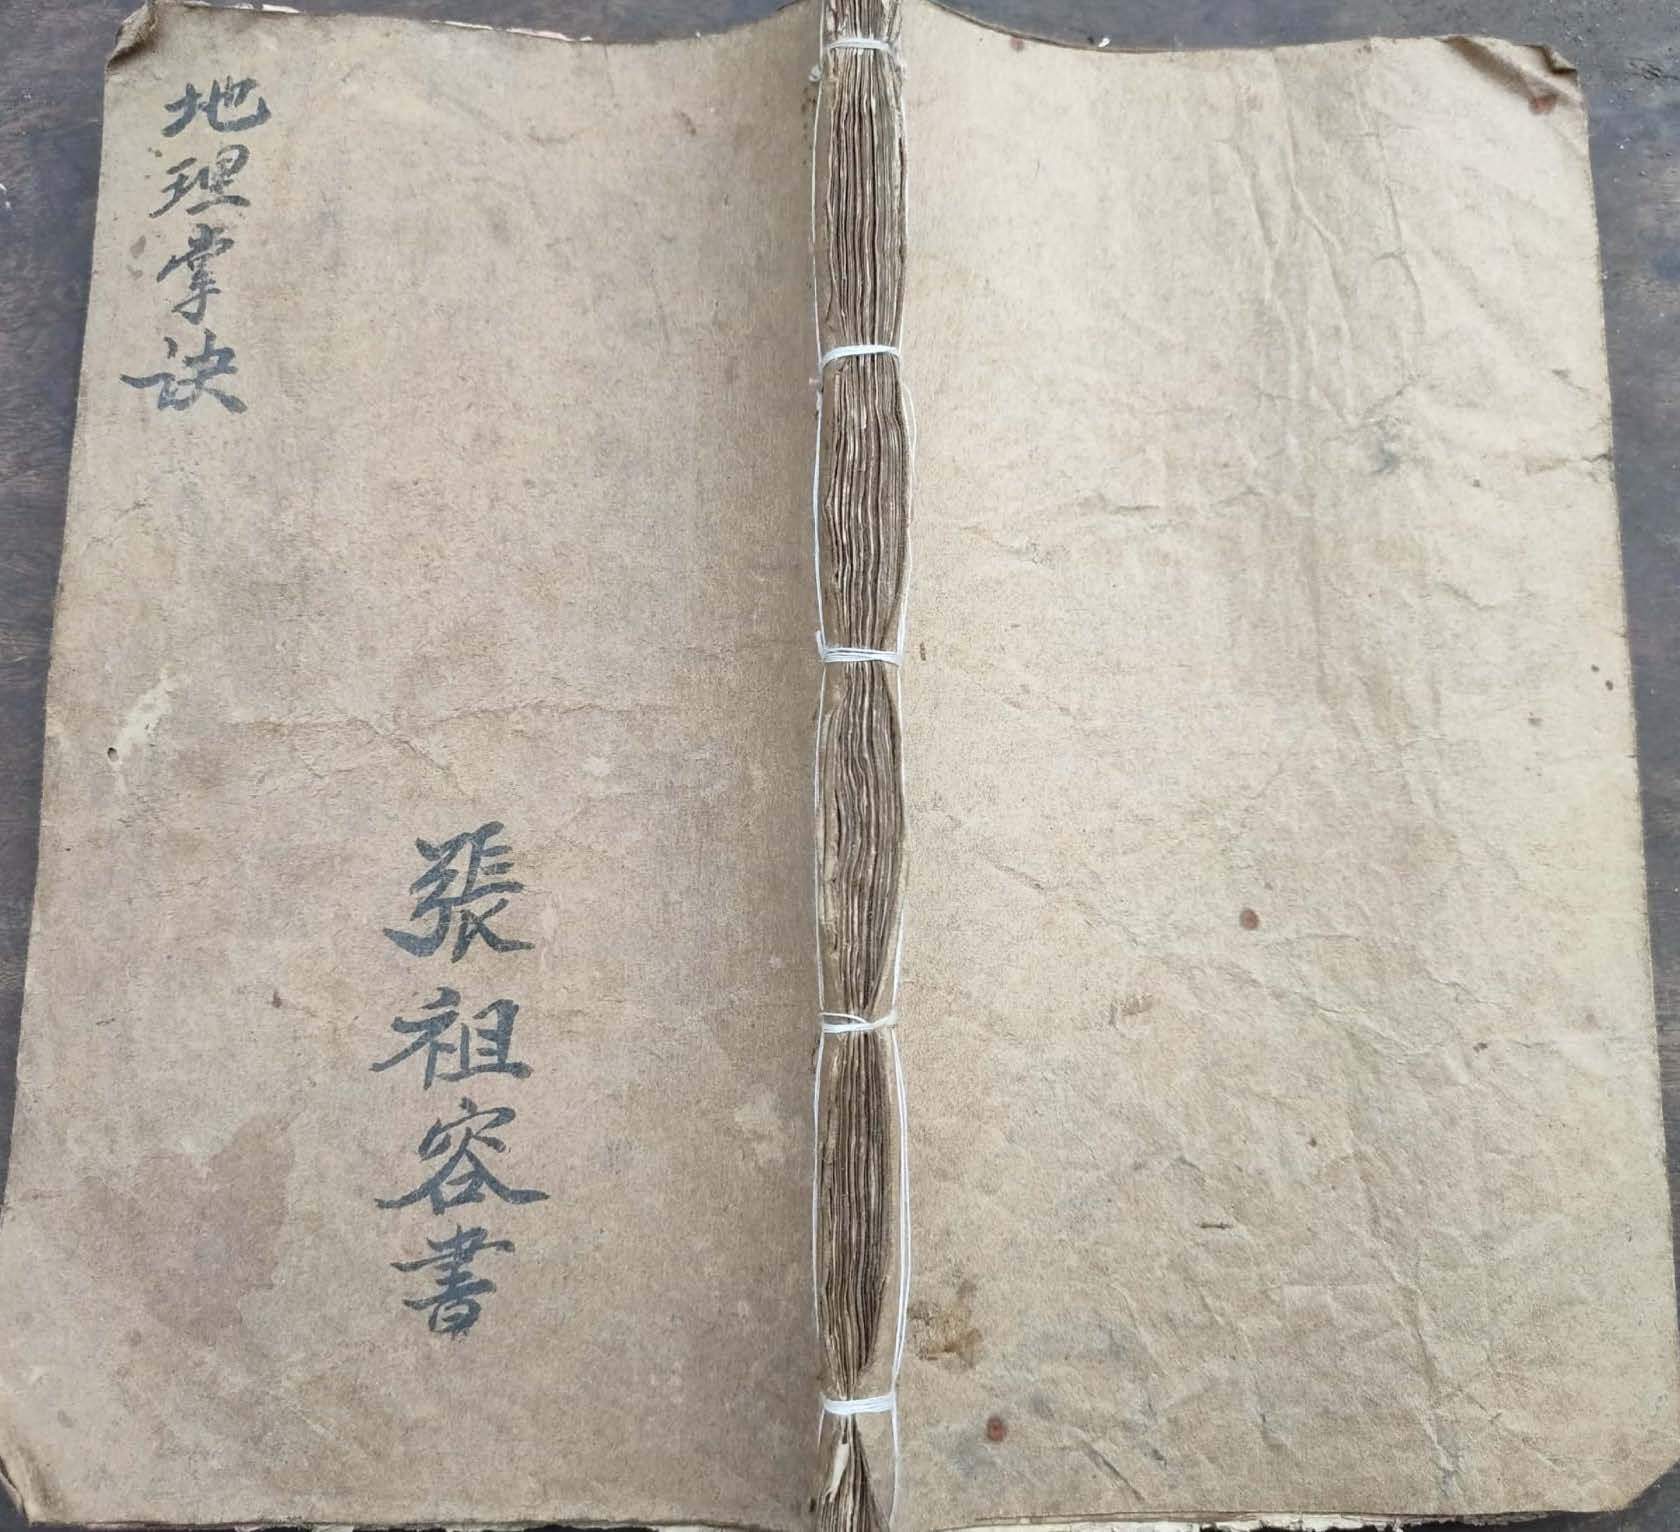 地理掌訣
張祖容書